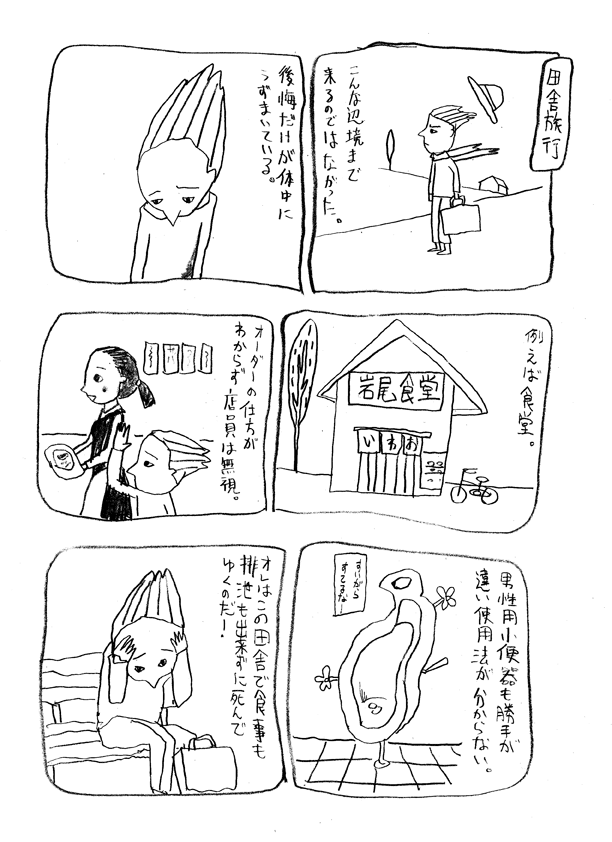 田舎旅行
こんな辺境まで
来るのではなかった。
後悔だけが体中に
うずまいている。
例えば食堂。
岩尾食堂
いわお
オーダーの仕方が
わからず店員は無視。
男性用小便器も勝手が
違い使用法が分からない。
すいがら
すてるなー
オレはこの田舎で食事も
排泄も出来ずに死んで
ゆくのだー!